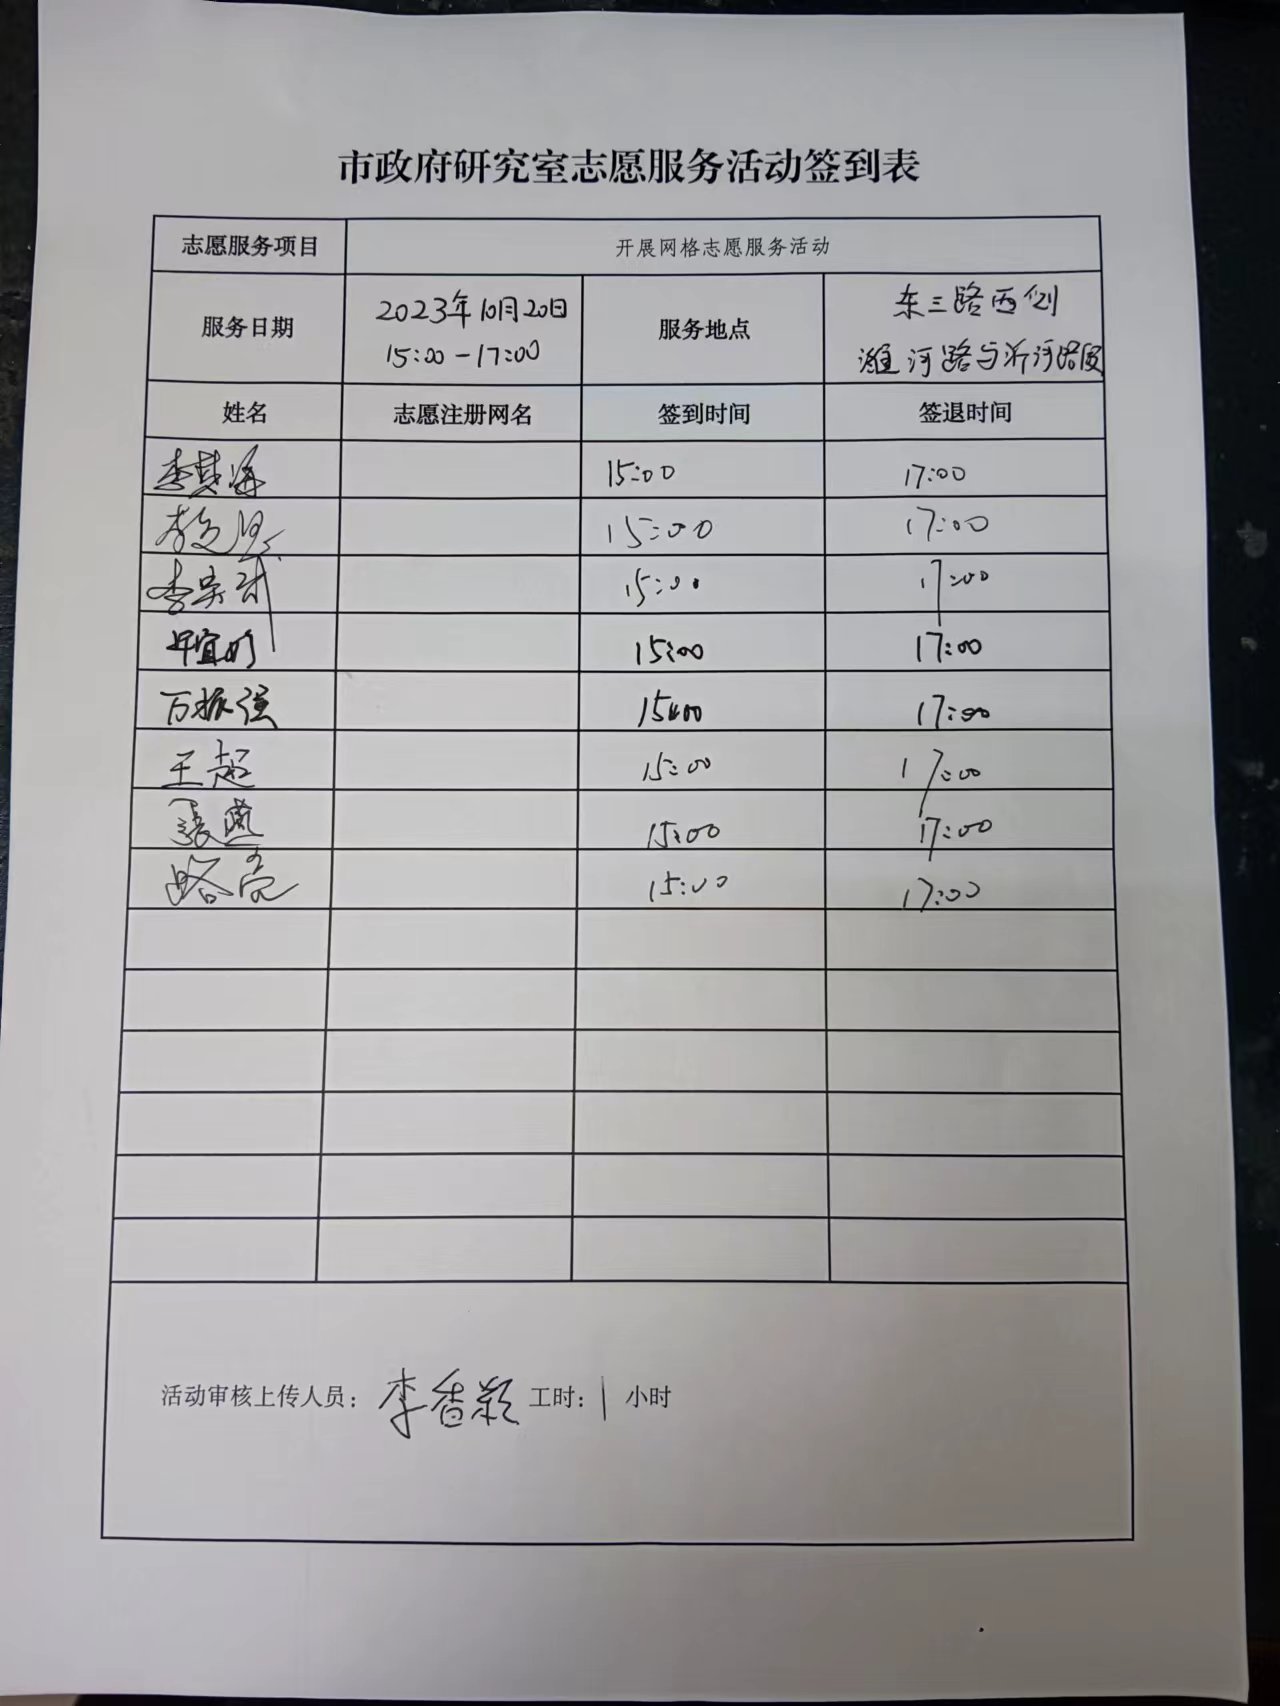 市政府研究室志愿服务活动签到表
志愿服务项目 开展网格志愿服务活动
服务日期 2023年10月20日 15:00-17:00 服务地点 东三路西侧 潍河路与沂河路段
姓名 志愿注册网名 签到时间 签退时间
15:00 17:00
15:00 17:00
15:00 17:00
15:00 17:00
万振强 15:00 17:00
王超 15:00 17:00
张 15:00 17:00
路亮 15:00 17:00
活动审核上传人员: 李香颖 工时: 1 小时